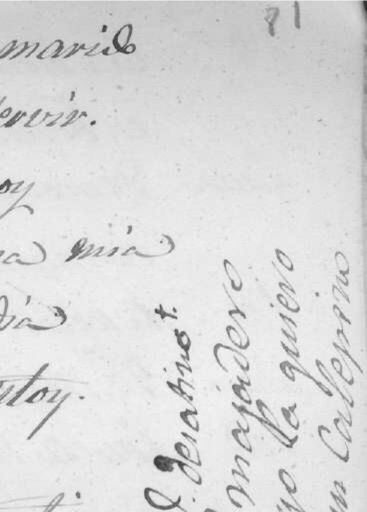 81
marido
servir.
oy
a mia
dia
stoy.
desatino t.
majadero
yo la quiero
un Calepino